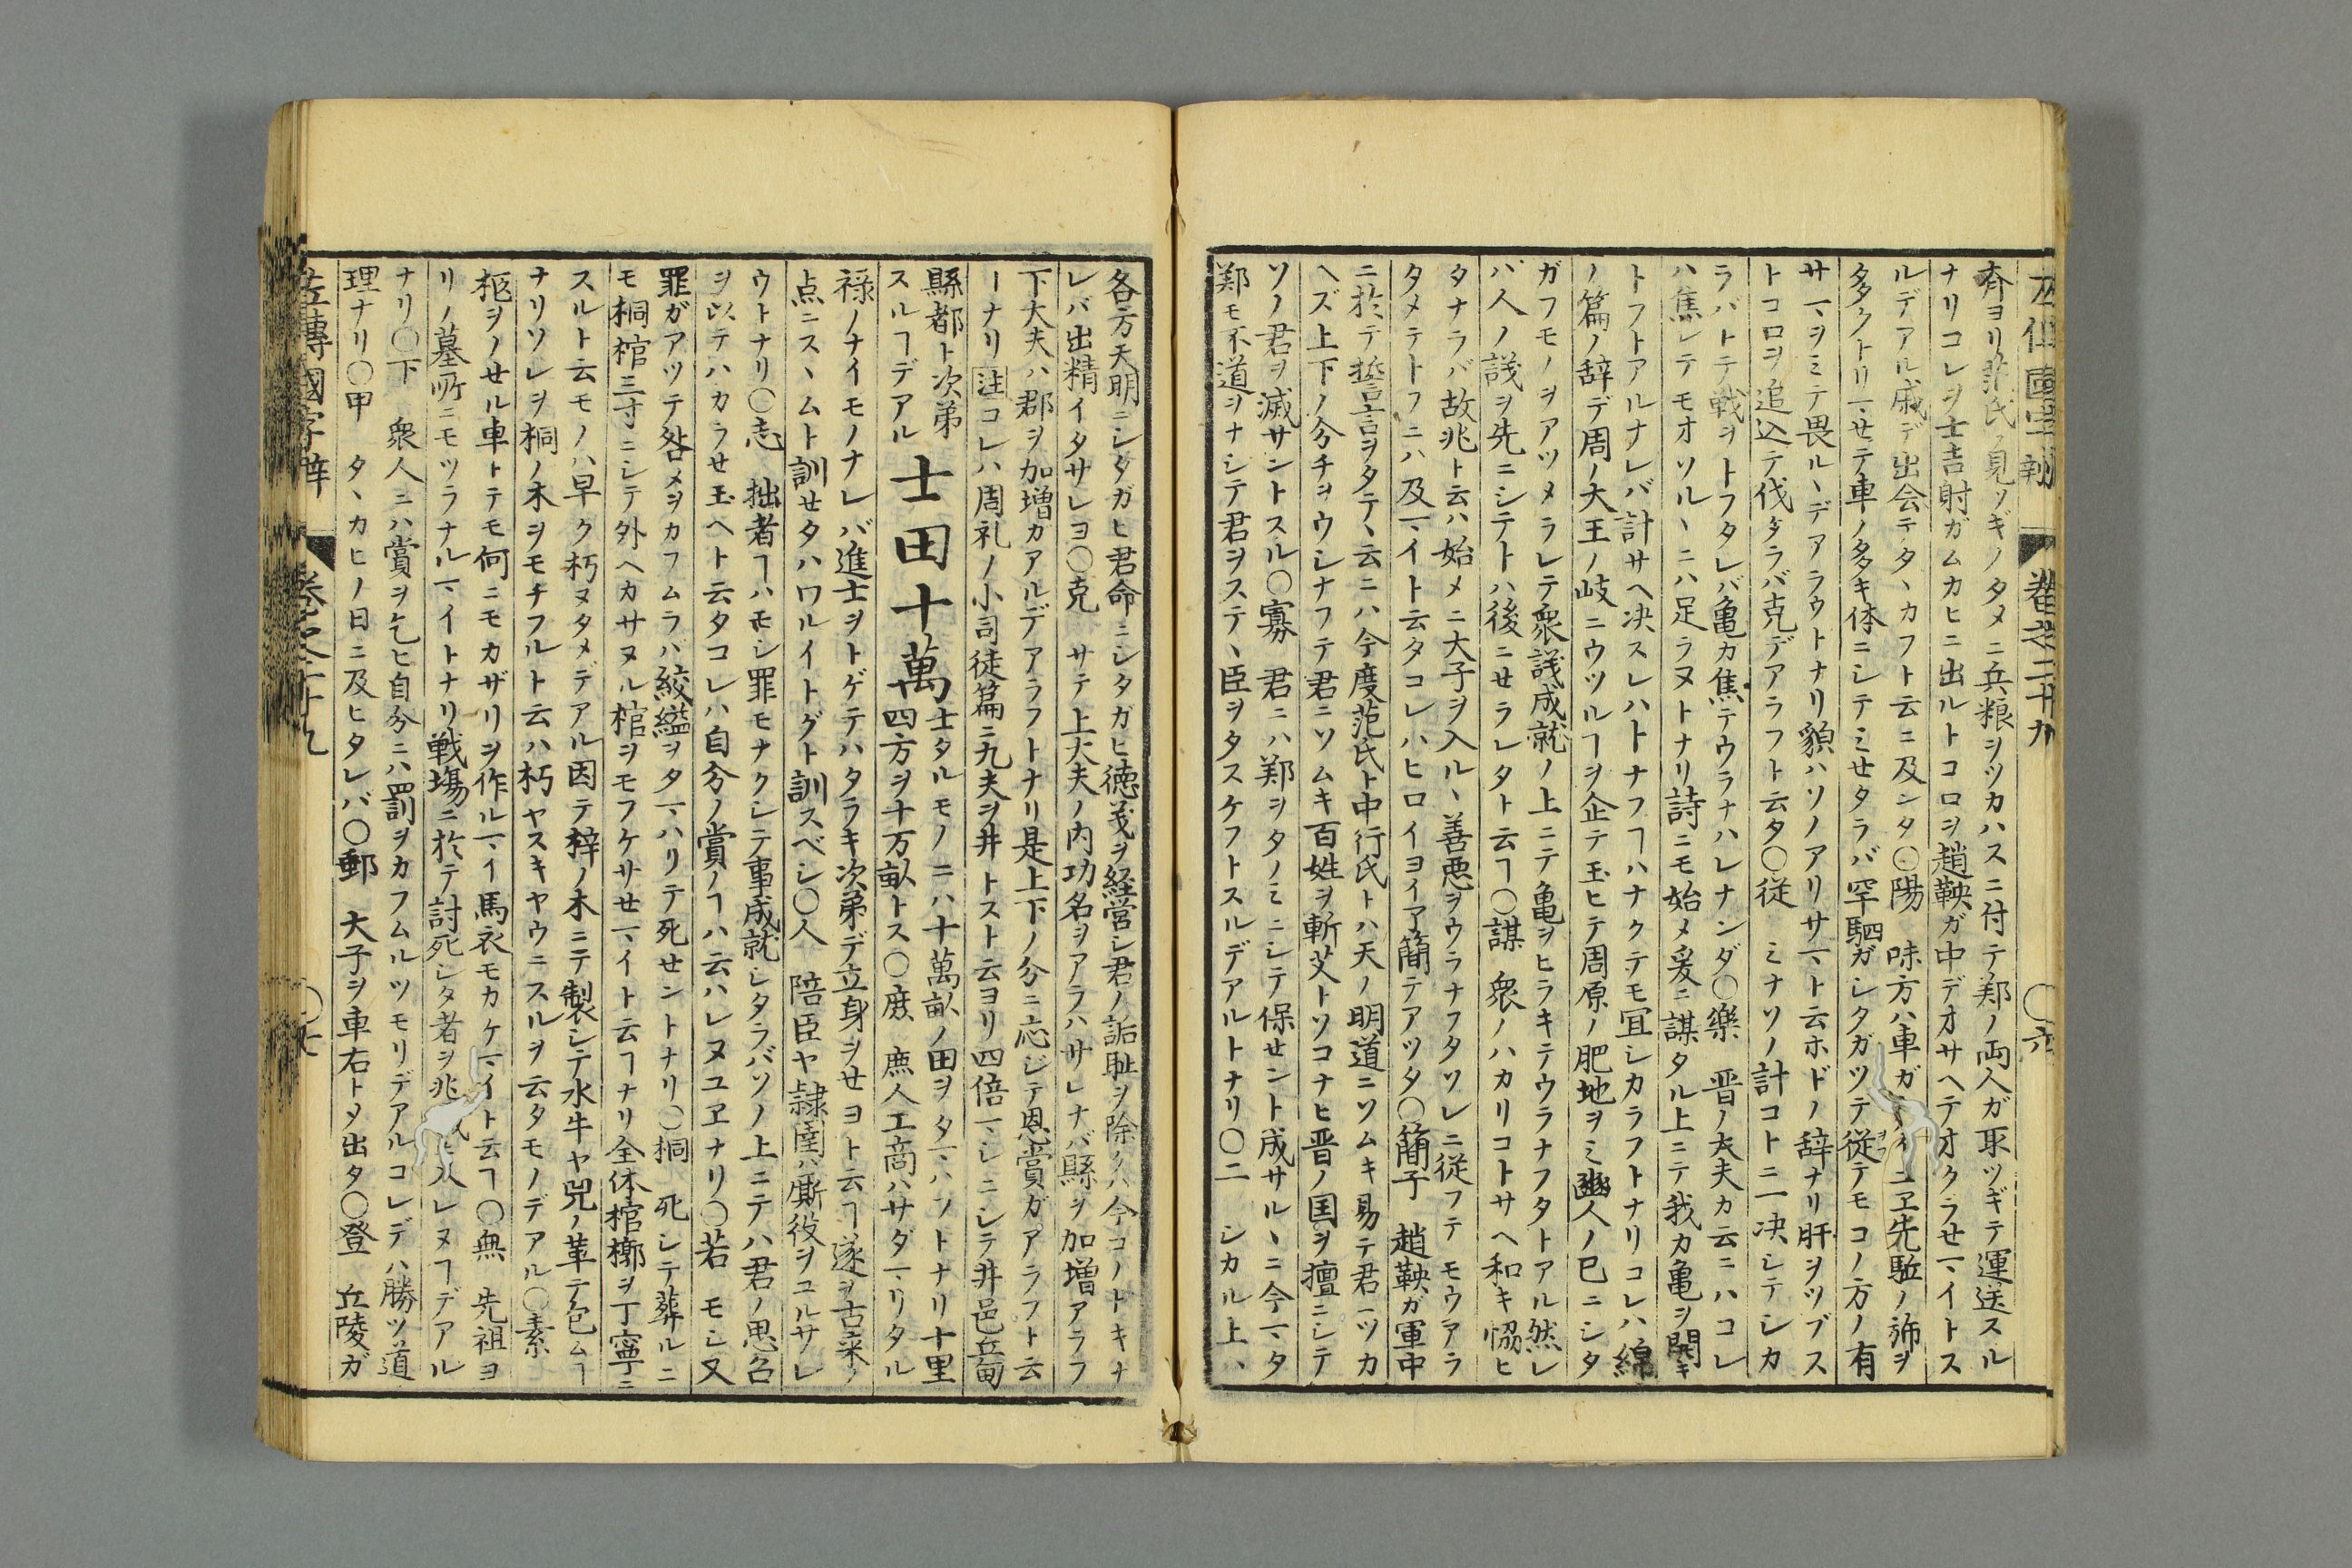 左傳國字辯 巻之二十九 〇六
斉ヨリ范氏ヲ見ツギノタメニ兵粮ヲツカハスニ付テ鄭ノ両人ガ取ツギテ運送スル
ナリコレヲ士吉射ガムカヒニ出ルトコロヲ趙鞅ガ中デオサヘテオクラセマイトス
ルデアル戚デ出会テタヽカフト云ニ及ンタ〇陽 味方ハ車ガ ユヱ先駈ノ旆ヲ
多クトリマセテ車ノ多キ体ニシテミセタラバ罕駟ガシタガツテ従テモコノ方ノ有
サマヲミテ畏ルヽデアラウトナリ貌ハソノアリサマト云ホドノ辞ナリ肝ヲツブス
トコロヲ追込テ伐タラバ克デアラフト云タ〇従 ミナソノ計コトニ一决シテシカ
ラバトテ戦ヲトフタレバ亀カ焦テウラナハレナンダ〇樂 晋ノ大夫カ云ニハコレ
ハ焦レテモオソルヽニハ足ラヌトナリ詩ニモ始メ爰ニ謀タル上ニテ我カ亀ヲ開キ
トフトアルナレバ計サヘ决スレハトナフヿハナクテモ冝シカラフトナリコレハ綿
ノ篇ノ辞デ周ノ大王ノ岐ニウツルヿヲ企テ玉ヒテ周原ノ肥地ヲミ豳人ノ已ニシタ
ガフモノヲアツメラレテ衆議成就ノ上ニテ亀ヲヒラキテウラナフタトアル然レ
ハ人ノ議ヲ先ニシテトハ後ニセラレタト云ヿ〇謀 衆ノハカリコトサヘ和キ恊ヒ
タナラバ故兆ト云ハ始メニ大子ヲ入ルヽ善悪ヲウラナフタソレニ従フテモウアラ
タメテトフニハ及マイト云タコレハヒロイヨイ簡テアツタ〇簡子 趙鞅ガ軍中
ニ於テ誓言ヲタテヽ云ニハ今度范氏ト中行氏トハ天ノ明道ニソムキ易テ君一ツカ
ヘズ上下ノ分チヲウシナフテ君ニソムキ百姓ヲ斬艾トソコナヒ晋ノ国ヲ擅ニシテ
ソノ君ヲ滅サントスル〇寡 君ニハ鄭ヲタノミニシテ保セント成サルヽニ今マタ
鄭モ不道ヲナシテ君ヲステヽ臣ヲタスケフトスルデアルトナリ〇二 シカル上ハ
各方天明ニシタガヒ君命ニシタガヒ徳義ヲ経営シ君ノ詬耻ヲ除クハ今コノトキナ
レバ出精イタサレヨ〇克 サテ上大夫ノ内功名ヲアラハサレナバ縣ヲ加増アラフ
下大夫ハ郡ヲ加増カアルデアラフトナリ是上下ノ分ニ応ジテ恩賞ガアラフト云
ーナリ注コレハ周礼ノ小司徒篇ニ九夫ヲ井トスト云ヨリ四倍マシニシテ井邑丘甸
縣都ト次第 士田十萬 士タルモノニハ十萬畝ノ田ヲタマハフトナリ十里
スルヿデアル 四方ヲ十万畝トス〇庶 庶人工商ハサダマリタル
禄ノナイモノナレバ進士ヲトゲテハタラキ次第デ立身ヲセヨト云ヿ遂ヲ古来ノ
点ニスヽムト訓セタハワルイトグト訓スベシ〇人 陪臣ヤ隷圉ハ廝役ヲユルサレ
ウトナリ〇志 拙者ヿハモシ罪モナクシテ事成就シタラバソノ上ニテハ君ノ思召
ヲ以テハカラセ玉ヘト云タコレハ自分ノ賞ノヿハ云ハレヌユヱナリ〇若 モシ又
罪ガアツテ咎メヲカフムラバ絞縊ヲタマハリテ死セントナリ〇桐 死シテ葬ルニ
モ桐棺三寸ニシテ外ヘカサヌル棺ヲモフケサセマイト云ヿナリ全体棺槨ヲ丁寧ニ
スルト云モノハ早ク朽ヌタメデアル因テ梓ノ木ニテ製シテ水牛ヤ兕ノ革テ包ムヿ
ナリソレヲ桐ノ木ヲモチフルト云ハ朽ヤスキヤウニスルヲ云タモノデアル〇素
柩ヲノセル車トテモ何ニモカザリヲ作ルマイ馬衣モカケマイト云ヿ〇無 先祖ヨ
リノ墓所ニモツラナルマイトナリ戦塲ニ於テ討死シタ者ヲ兆域ニ入レヌヿデアル
ナリ〇下 衆人ニハ賞ヲ乞ヒ自分ニハ罰ヲカフムルツモリデアルコレデハ勝ツ道
理ナリ〇甲 タヽカヒノ日ニ及ヒタレバ〇郵 大子ヲ車右トメ出タ〇登 丘陵ガ
左傳國字辯 巻之二十九 〇七